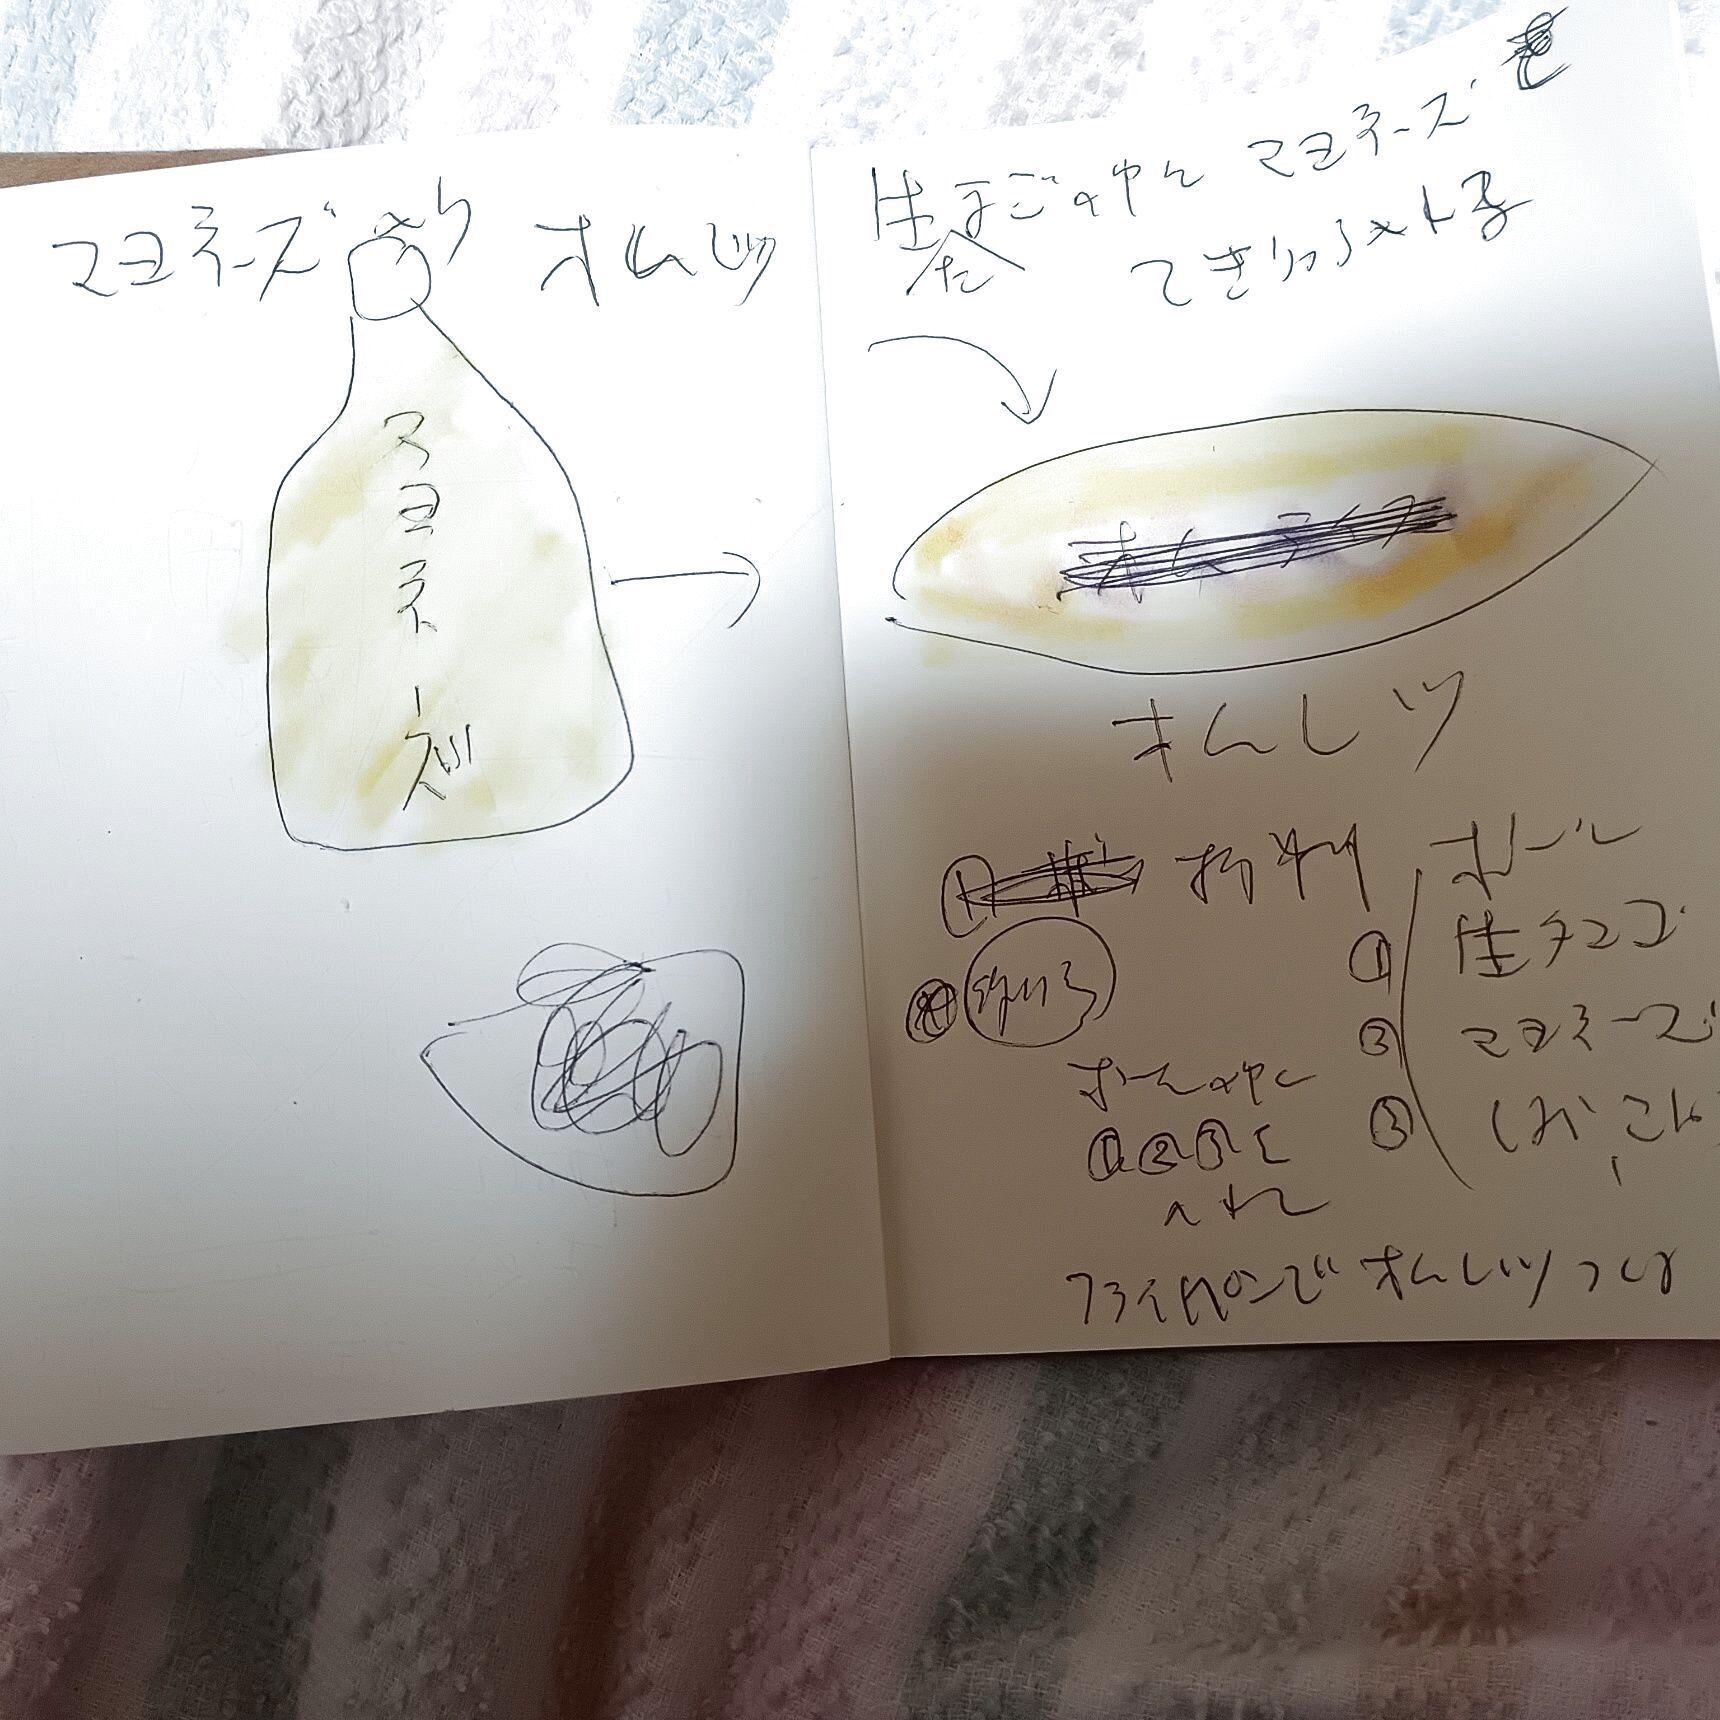 マヨネーズ入り オムレツ
マヨネーズ
生たまごの中に マヨネーズを
てきりょう入れる
オムレツ
① 材料
ボール
① 生タマゴ
② マヨネーズ
③ しお こしょ
作り方
ボールの中に
①②③を
入れて
フライパンで オムレツ つくる